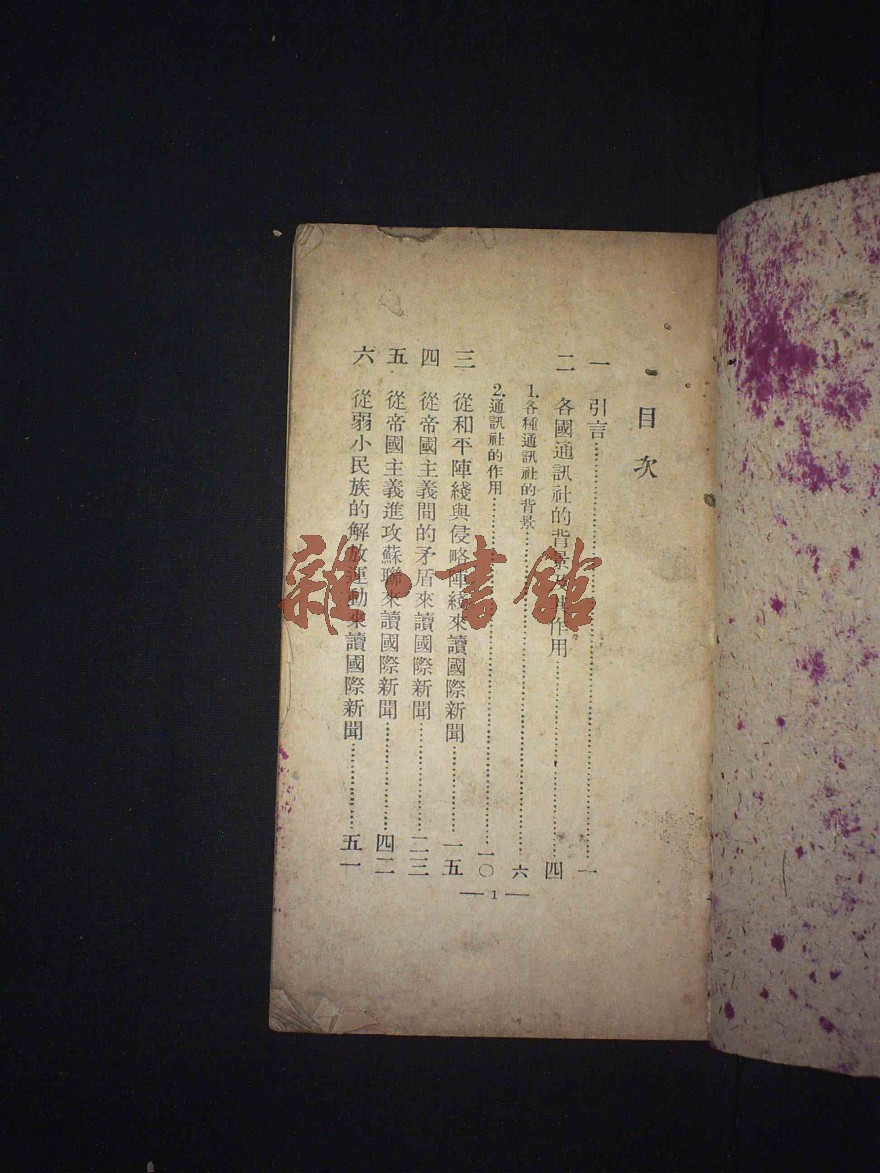 目次
一 引言……一
二 各國通訊社的背景及其作用……四
1.各種通訊社的背景……六
2.通訊社的作用……一〇
三 從和平陣綫與侵略陣綫來讀國際新聞……一五
四 從帝國主義間的矛盾來讀國際新聞……二三
五 從帝國主義進攻蘇聯來讀國際新聞……四二
六 從弱小民族的解放運動來讀國際新聞……五一
— 1 —
雜·書館